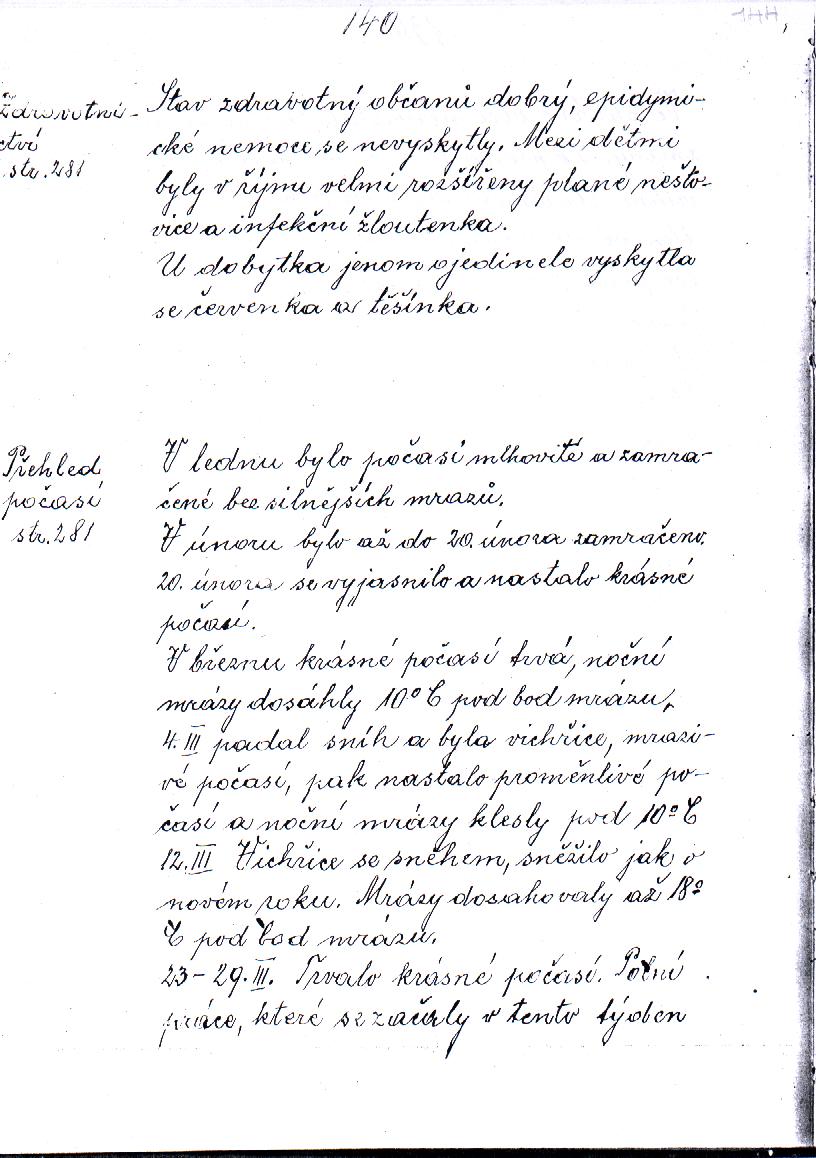 140
144,
Zdravotni-
ctví
str. 281
Stav zdravotný občanů dobrý, epidymi-
cké nemoce se nevyskytly. Mezi dětmi
byly v říjnu velmi rozšířeny plané nešto-
vice a infekční žloutenka.
U dobytka jenom ojedinele vyskytla
se červenka a těšínka.
Přehled
počasí
str. 281
V lednu bylo počasí mlhovité a zamra-
čené bez silnějších mrazů.
V únoru bylo až do 20. února zamračeno.
20. února se vyjasnilo a nastalo krásné
počasí.
V březnu krásné počasí trvá, noční
mrázy dosáhly 10° C pod bod mrázu,
4. III padal sníh a byla vichřice, mrazi-
vé počasí, pak nastalo proměnlivé po-
časí a noční mrázy klesly pod 10° C
12. III Vichřice se sněhem, sněžilo jak o
novém roku. Mrázy dosahovaly až 18°
C pod bod mrázu.
23-29. III. Trvalo krásné počasí. Polní
práce, které se začaly v tento týden